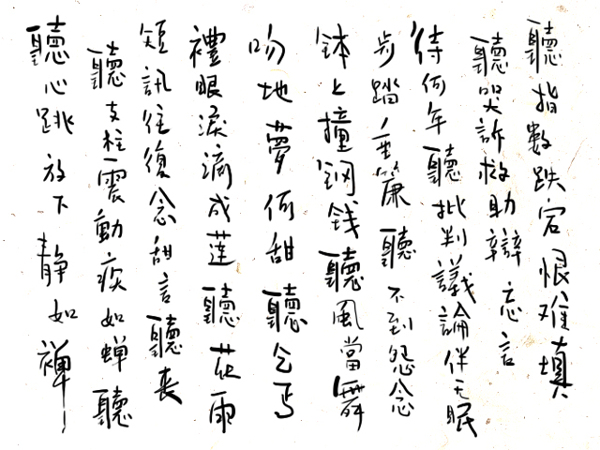 聽心跳放下静如禅
聽支柱震動疾如蝉聽
短訊往復念甜言聽喪
禮眼淚滴成蓮聽花雨
吻地夢何甜聽乞丐
钵上撞钢钱聽風當舞
步踏聽不到怨念
待何年聽批判議論伴无眠
聽哭訴救助辯忘言
聽指數跌宕恨难填